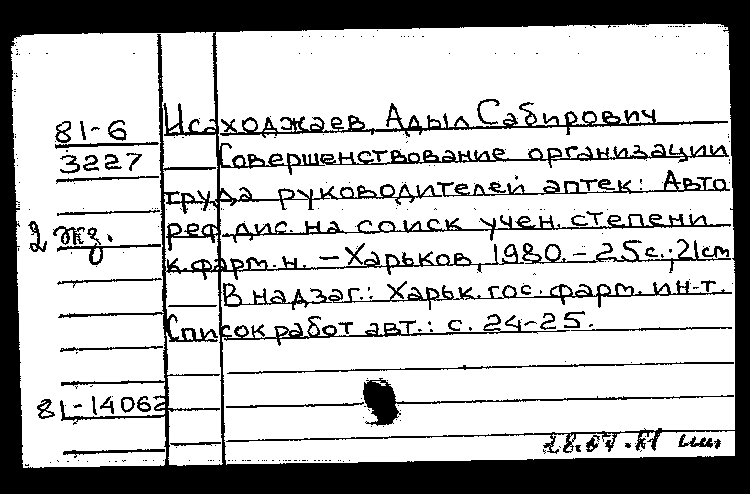 81-6
3227
2 экз.
81-14062
Исаходжаев, Адыл Сабирович
Совершенствование организации
труда руководителей аптек: Авто
реф. дис. на соиск учен. степени
к.фарм.н. – Харьков, 1980. – 25с.; 21см
В надзаг.: Харьк. гос. фарм. ин-т.
Список работ авт.: с. 24-25.
28.07.81